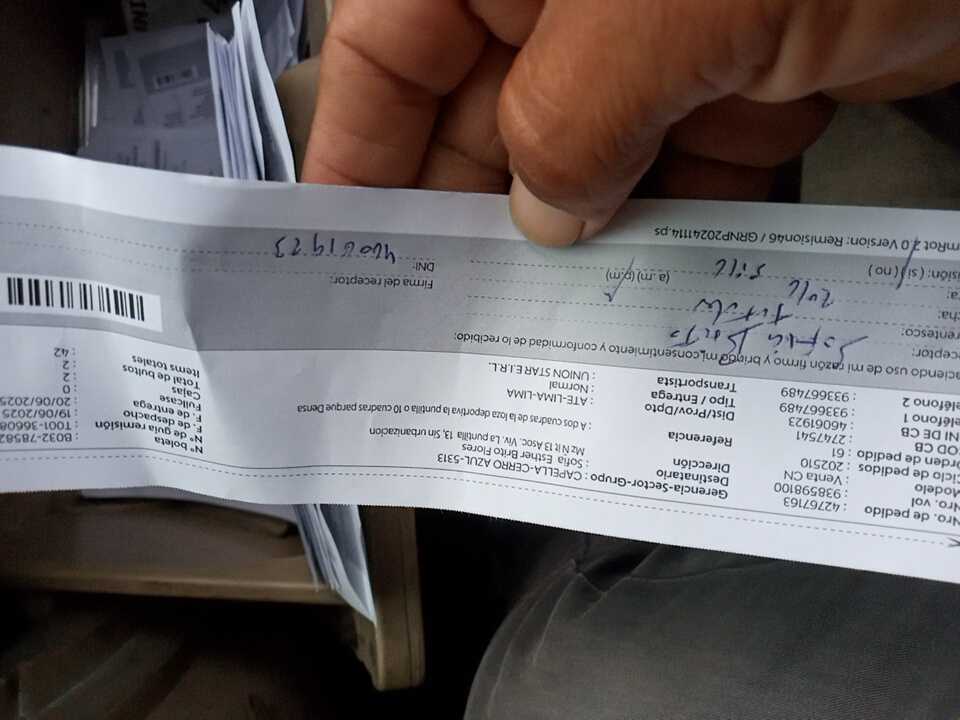 Nro. de pedido : 42767163
Nro. vol : 9385998100
Modelo : Venta CN
Ciclo de pedidos : 202510
Orden de pedido : 61
COD CB : 2747541
DNI DE CB : 46061923
Teléfono 1 : 933667489
Teléfono 2 : 933667489
Gerencia-Sector-Grupo : CAPELLA-CERRO AZUL-5313
Destinatario : Sofia Esther Brito Flores
Dirección : Mz Nit 13 Asoc. Viv. La puntilla Sin urbanizacion
Referencia : A dos cuadras de la loza deportiva la puntilla o 10 cuadras parque Densa
Dist/Prov/Dpto : ATE-LIMA-LIMA
Tipo / Entrega : Normal
Transportista : UNION STAR E.I.R.L.
N° boleta : B032-78582
N° de guía remisión : T001-36608
F. de despacho : 19/06/2025
F. de entrega : 20/06/2025
Fullcase : 0
Cajas : 2
Total de bultos : 2
Items totales : 42
aciendo uso de mi razón firmo y brindo mi consentimiento y conformidad de lo recibido:
ceptor: Sofia Brito
rentesco: Titular
cha: 20/6
ra: (a.m) (p.m)
isión: ( si ) ( no )
Firma del receptor:
DNI: 46061923
mRot 2.0 Version: Remision46 / GRNP20241114.ps